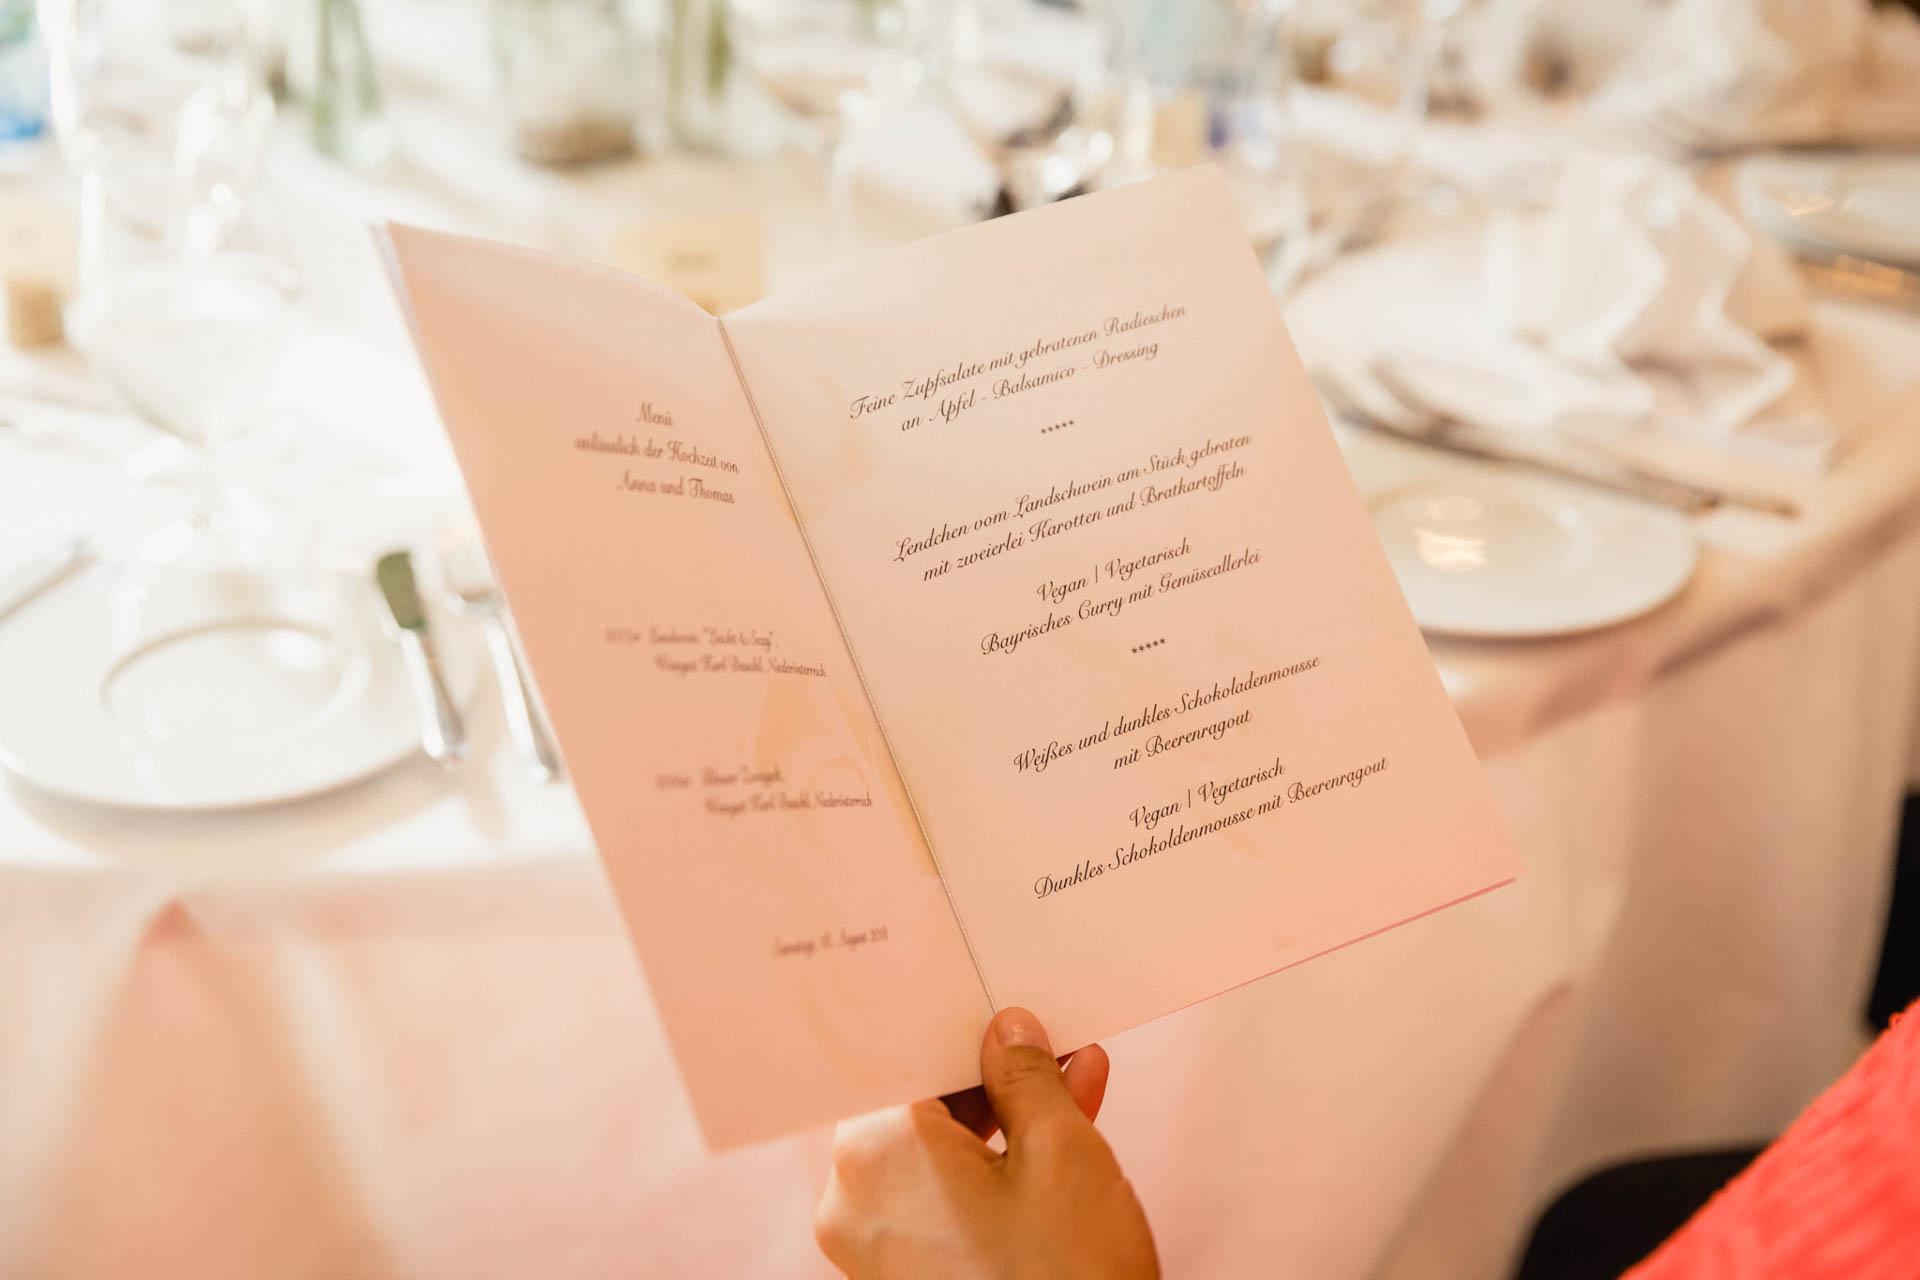 Menü
anlässlich der Hochzeit von
Anna und Thomas
Weingut Karl Niederösterreich
Blauer Zweigelt,
Weingut Karl Niederösterreich
Samstag, August
Feine Zupfsalate mit gebratenen Radieschen
an Apfel - Balsamico - Dressing
*****
Lendchen vom Landschwein am Stück gebraten
mit zweierlei Karotten und Bratkartoffeln
Vegan | Vegetarisch
Bayrisches Curry mit Gemüseallerlei
*****
Weißes und dunkles Schokoladenmousse
mit Beerenragout
Vegan | Vegetarisch
Dunkles Schokoldenmousse mit Beerenragout